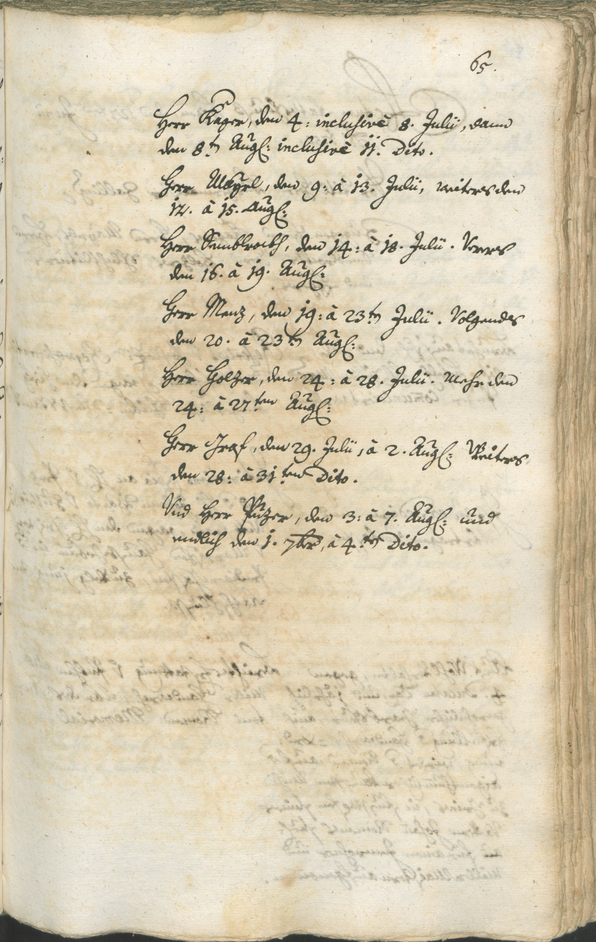 65.
Herr Kager, den 4: inclusivè 8. Julii, dann
den 8t. Aug: inclusivè 11. Dito.
Herr den 9: à 13. Julii, weiters den
12. à 15. Aug:
Herr den 14: à 18. Julii.
den 16. à 19. Aug:
Herr Menz, den 19: à 23tn Julii. Volgendes
den 20. à 23tn Aug:
Herr Holzer, den 24: à 28. Julii. Mehr den
24: à 27ten Aug:
Herr Graf, den 29. Julii, à 2. Aug: Weiters
den 28: à 31ten Dito.
Vnd Herr Puzer, den 3: à 7. Aug: und
endlich den 1. 7ber, à 4.tn Dito.